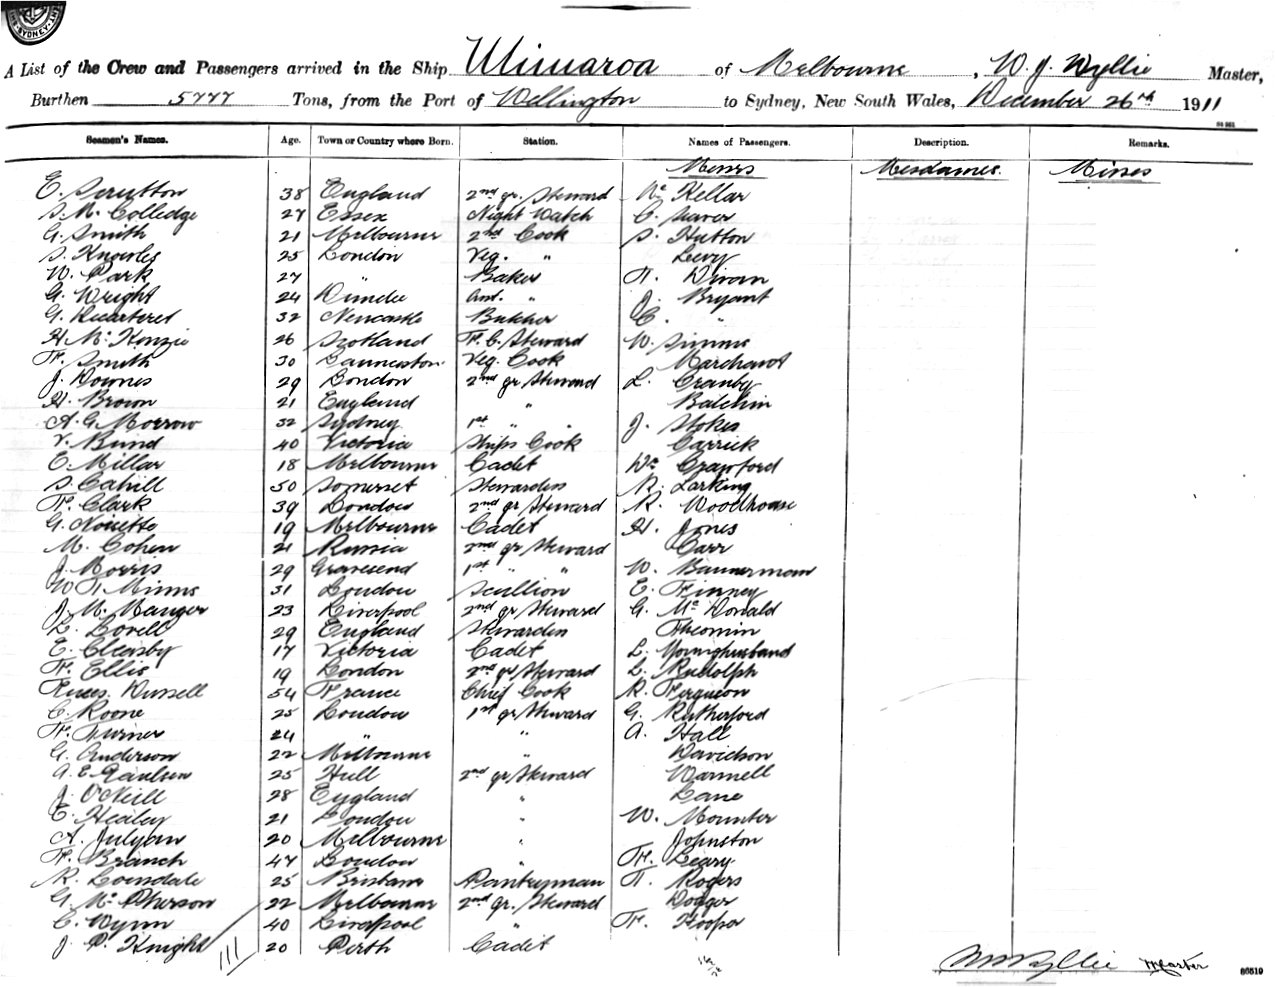 SYDNEY
A List of the Crew and Passengers arrived in the Ship Ulimaroa of Melbourne, W. J. Wyllie Master,
Burthen 5777 Tons, from the Port of Wellington to Sydney, New South Wales, December 26th 1911
Seamen's Names. Age. Town or Country where Born. Station. Names of Passengers. Description. Remarks.
Messrs Mesdames. Misses
E. Scrutton 38 England 2nd gr. Steward Mc Kellar
S. M. Colledge 27 Essex Night Watch C. Seaver
G. Smith 21 Melbourne 2nd Cook S. Hutton
S. Knowles 25 London Veg. " Levy
W. Park 27 " Baker
G. Wright 24 Dundee Asst. " J. Bryant
G. 32 Newcastle Butcher C. "
H. McKenzie 26 Scotland F. C. Steward W. Simms
F. Smith 30 Launceston Veg. Cook Marchant
J. Downes 29 London 2nd gr Steward L. Cranby
H. Brown 21 England " Balchin
A. G. Morrow 32 Sydney 1st " " J. Stokes
V. Bund 40 Victoria Ships Cook Carrick
E. Millar 18 Melbourne Cadet Wm Crawford
S. Cahill 50 Somerset Stewardess R. Larking
F. Clark 39 London 2nd gr Steward R. Woodhouse
G. 19 Melbourne Cadet H. Jones
M. Cohen 21 Russia 2nd gr Steward Carr
J. Morris 29 Gravesend 1st " " W. Bannerman
W. T. Minns 31 London Scullion E. Finney
J. M. Manger 23 Liverpool 2nd gr Steward G. McDonald
L. Lovell 29 England Stewardess Theomin
E. Cleasby 17 Victoria Cadet L. Younghusband
F. Ellis 19 London 2nd gr Steward L. Rudolph
Durrell 54 France Chief Cook R. Ferguson
C. Roone 25 London 1st gr Steward G. Rutherford
F. Turner 24 " " A. Hall
G. Anderson 22 Melbourne " Davidson
A. E. 25 Hull 2nd gr Steward Warnell
J. O'Neill 28 England " Lane
C. Healey 21 London " W. Mounter
A. Julyan 20 Melbourne " Johnston
F. Branch 47 London " F. Leary
R. Lonsdale 25 Brisbane Pantryman T. Rogers
G. McPherson 22 Melbourne 2nd gr. Steward Dodger
C. Wynn 40 Liverpool " F. Hooper
J. P. Knight 20 Perth Cadet
111
W J Wyllie Master
86519